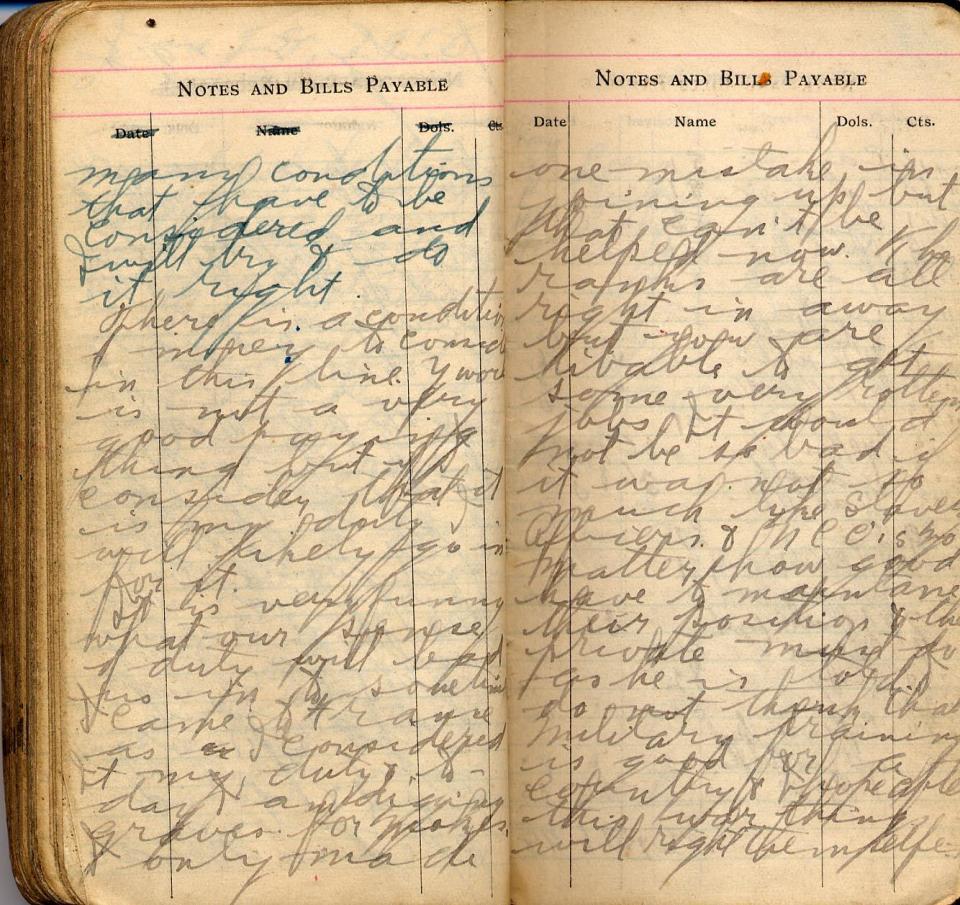 NOTES AND BILLS PAYABLE
Date Name Dols. Cts
many conditions
that have to be
considered and
I will try & do
it right.
There is a condition
I money to consid
in this line. Y wor
is not a very
good paying
thing but if I
consider that it
is my duty I
will likely go in
for it.
It is very funny
what our sense
of duty will lead
us in to sometim
I came to France
as I considered
it my duty, & to-
day I am digging
graves. For
I only made
NOTES AND BILLS PAYABLE
Date Name Dols. Cts.
one mistake in
joining up but
that can't be
helped now. The
ranks are all
right in away
but you are
liable to get
some very rotten
jobs. It would
not be so bad if
it was not so
much like slavery
Officers & N C O's no
matter how good
have to maintane
their position & the
private must do
as he is told. I
do not think that
military training
is good for a
country & hope after
this war things
will right themselfe